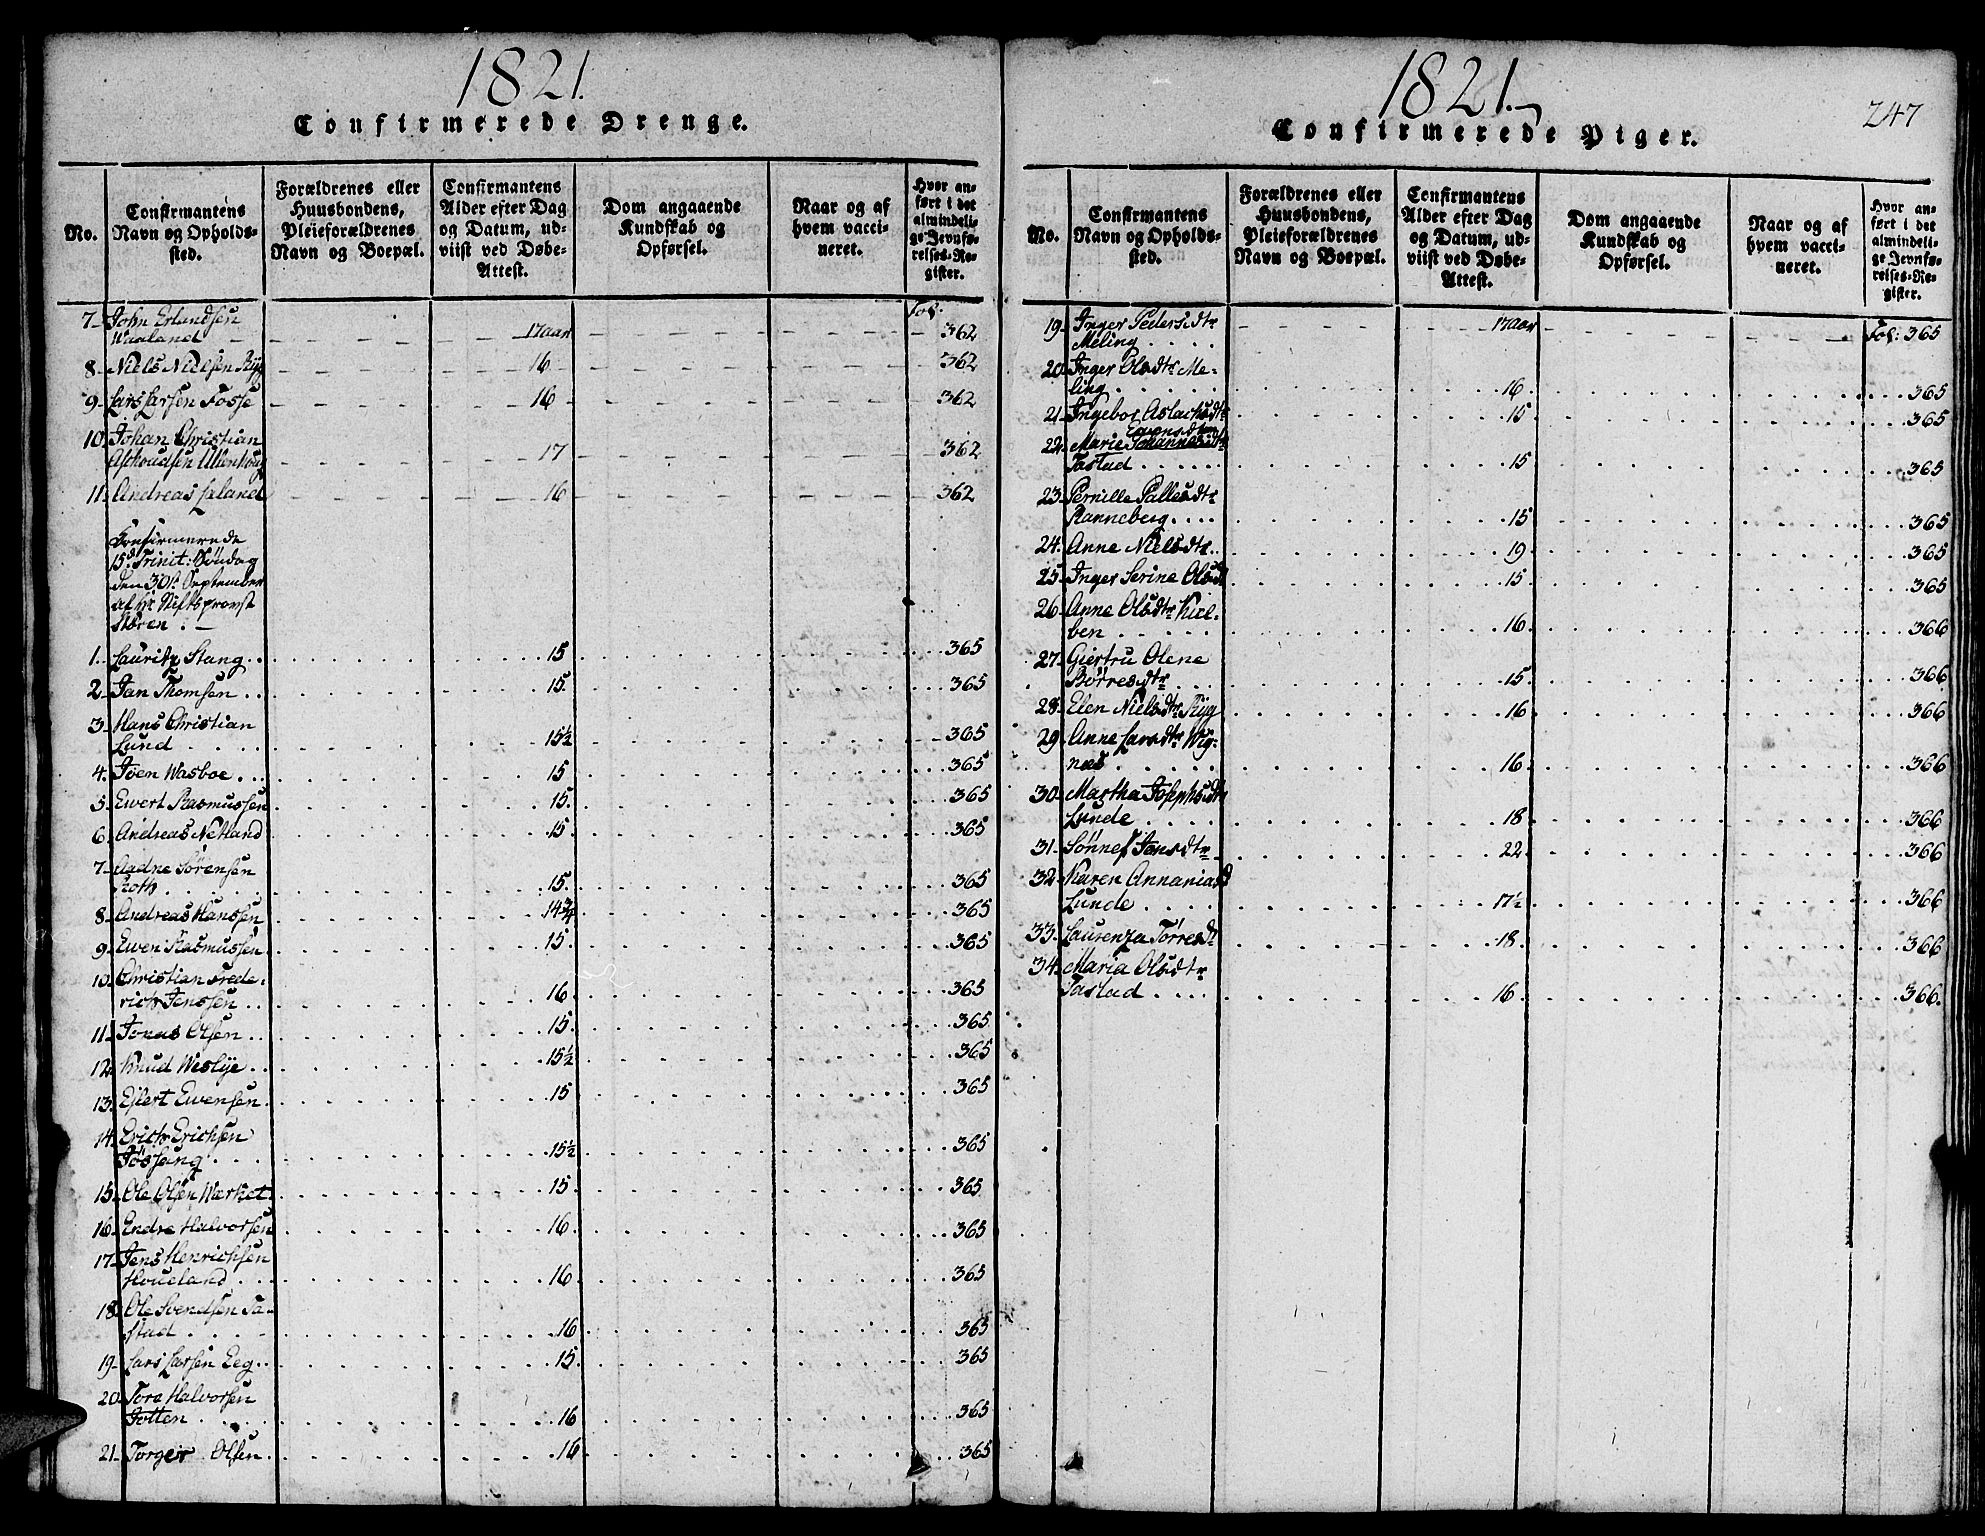 1821.
Confirmerede Drenge.
No.
Confirmantens
Navn og Opholds-
sted.
Forældrenes eller
Huusbondens,
Pleieforældrenes
Navn og Boepæl.
Confirmantens
Alder efter Dag
og Datum, ud-
viist ved Døbe-
Attest.
Dom angaaende
Kundskab og
Opførsel.
Naar og af
hvem vacci-
neret.
Hvor an-
ført i det
almindeli-
ge Jevnfø-
relses-Re-
gister.
Fol.
7 John Erlandsen
Waaland 17 aar 362
8 Niels Nielsen Ryg 16 362
9 Lars Larsen Fosse 16 362
10. Johan Christian
Ullenhoug 17 362
11. Andreas Laland 16 362
Confirmerede
15d Trinit: Søndag
den 30te September
af Hr Stiftsprovst
Støren.
1. Lauritz Stang 15 365
2. Jan Thomsen 15. 365
3 Hans Christian
Lund 15½ 365
4. Joen Wasboe 15 365
5. Ewert Rasmussen 15. 365
6. Andreas Netland 15. 365
7. Aadne Sørensen
Roth 15. 365
8. Andreas Hanssen 14¾ 365
9. Ewen Rasmussen 15. 365
10. Christian Frede-
rich Jenssen 16 365
11. Jonas Olsen 15. 365
12. Knud Weslye 15½ 365
13. Ejlert Ewensen 15 365
14. Erich Erichsen
Jøssang 15½ 365
15. Ole Olsen Wærket 15. 365
16. Endre Halvorsen 16. 365
17. Jens Henrichsen
Houeland 16 365
18 Ole Svendsen Ta-
stad 16 365
19. Lars Larsen Eeg 15. 365
20. Tore Halvorsen
Jotten 16 365
21. Torger Olsen 16 365
1821.
247
Confirmerede Piger.
No.
Confirmantens
Navn og Opholds-
sted.
Forældrenes eller
Huusbondens,
Pleieforældrenes
Navn og Boepæl.
Confirmantens
Alder efter Dag
og Datum, ud-
viist ved Døbe-
Attest.
Dom angaaende
Kundskab og
Opførsel.
Naar og af
hvem vacci-
neret.
Hvor an-
ført i det
almindeli-
ge Jevnfø-
relses-Re-
gister.
19. Inger Pedersdtr
Meling 17 aar Fol: 365
20. Inger Olsdtr Me-
ling 16 365
21. Ingebor Aslachsdtr 15 365
Ewensdtr
22. Marie Johannesdtr
Tastad 15 365
23. Pernille Pallesdtr
Ranneberg 15 365
24. Anne Nielsdtr 19 365
25. Inger Serine Olsdt 15 365
26 Anne Olsdtr Kiel-
ben 16 366
27. Giertru Olene
Børresdtr 15. 366
28. Elen Nielsdtr Ryg 16 366
29. Anne Larsdtr Wig-
næs 16. 366
30. Martha Josephsdtr
Lunde 18 366
31. Sønnef Jansdtr 22. 366
32. Karen Annaniasd
Lunde 17½ 366
33. Laurenza Torresdt 18. 366
34. Maria Olsdtr
Tastad 16 366.